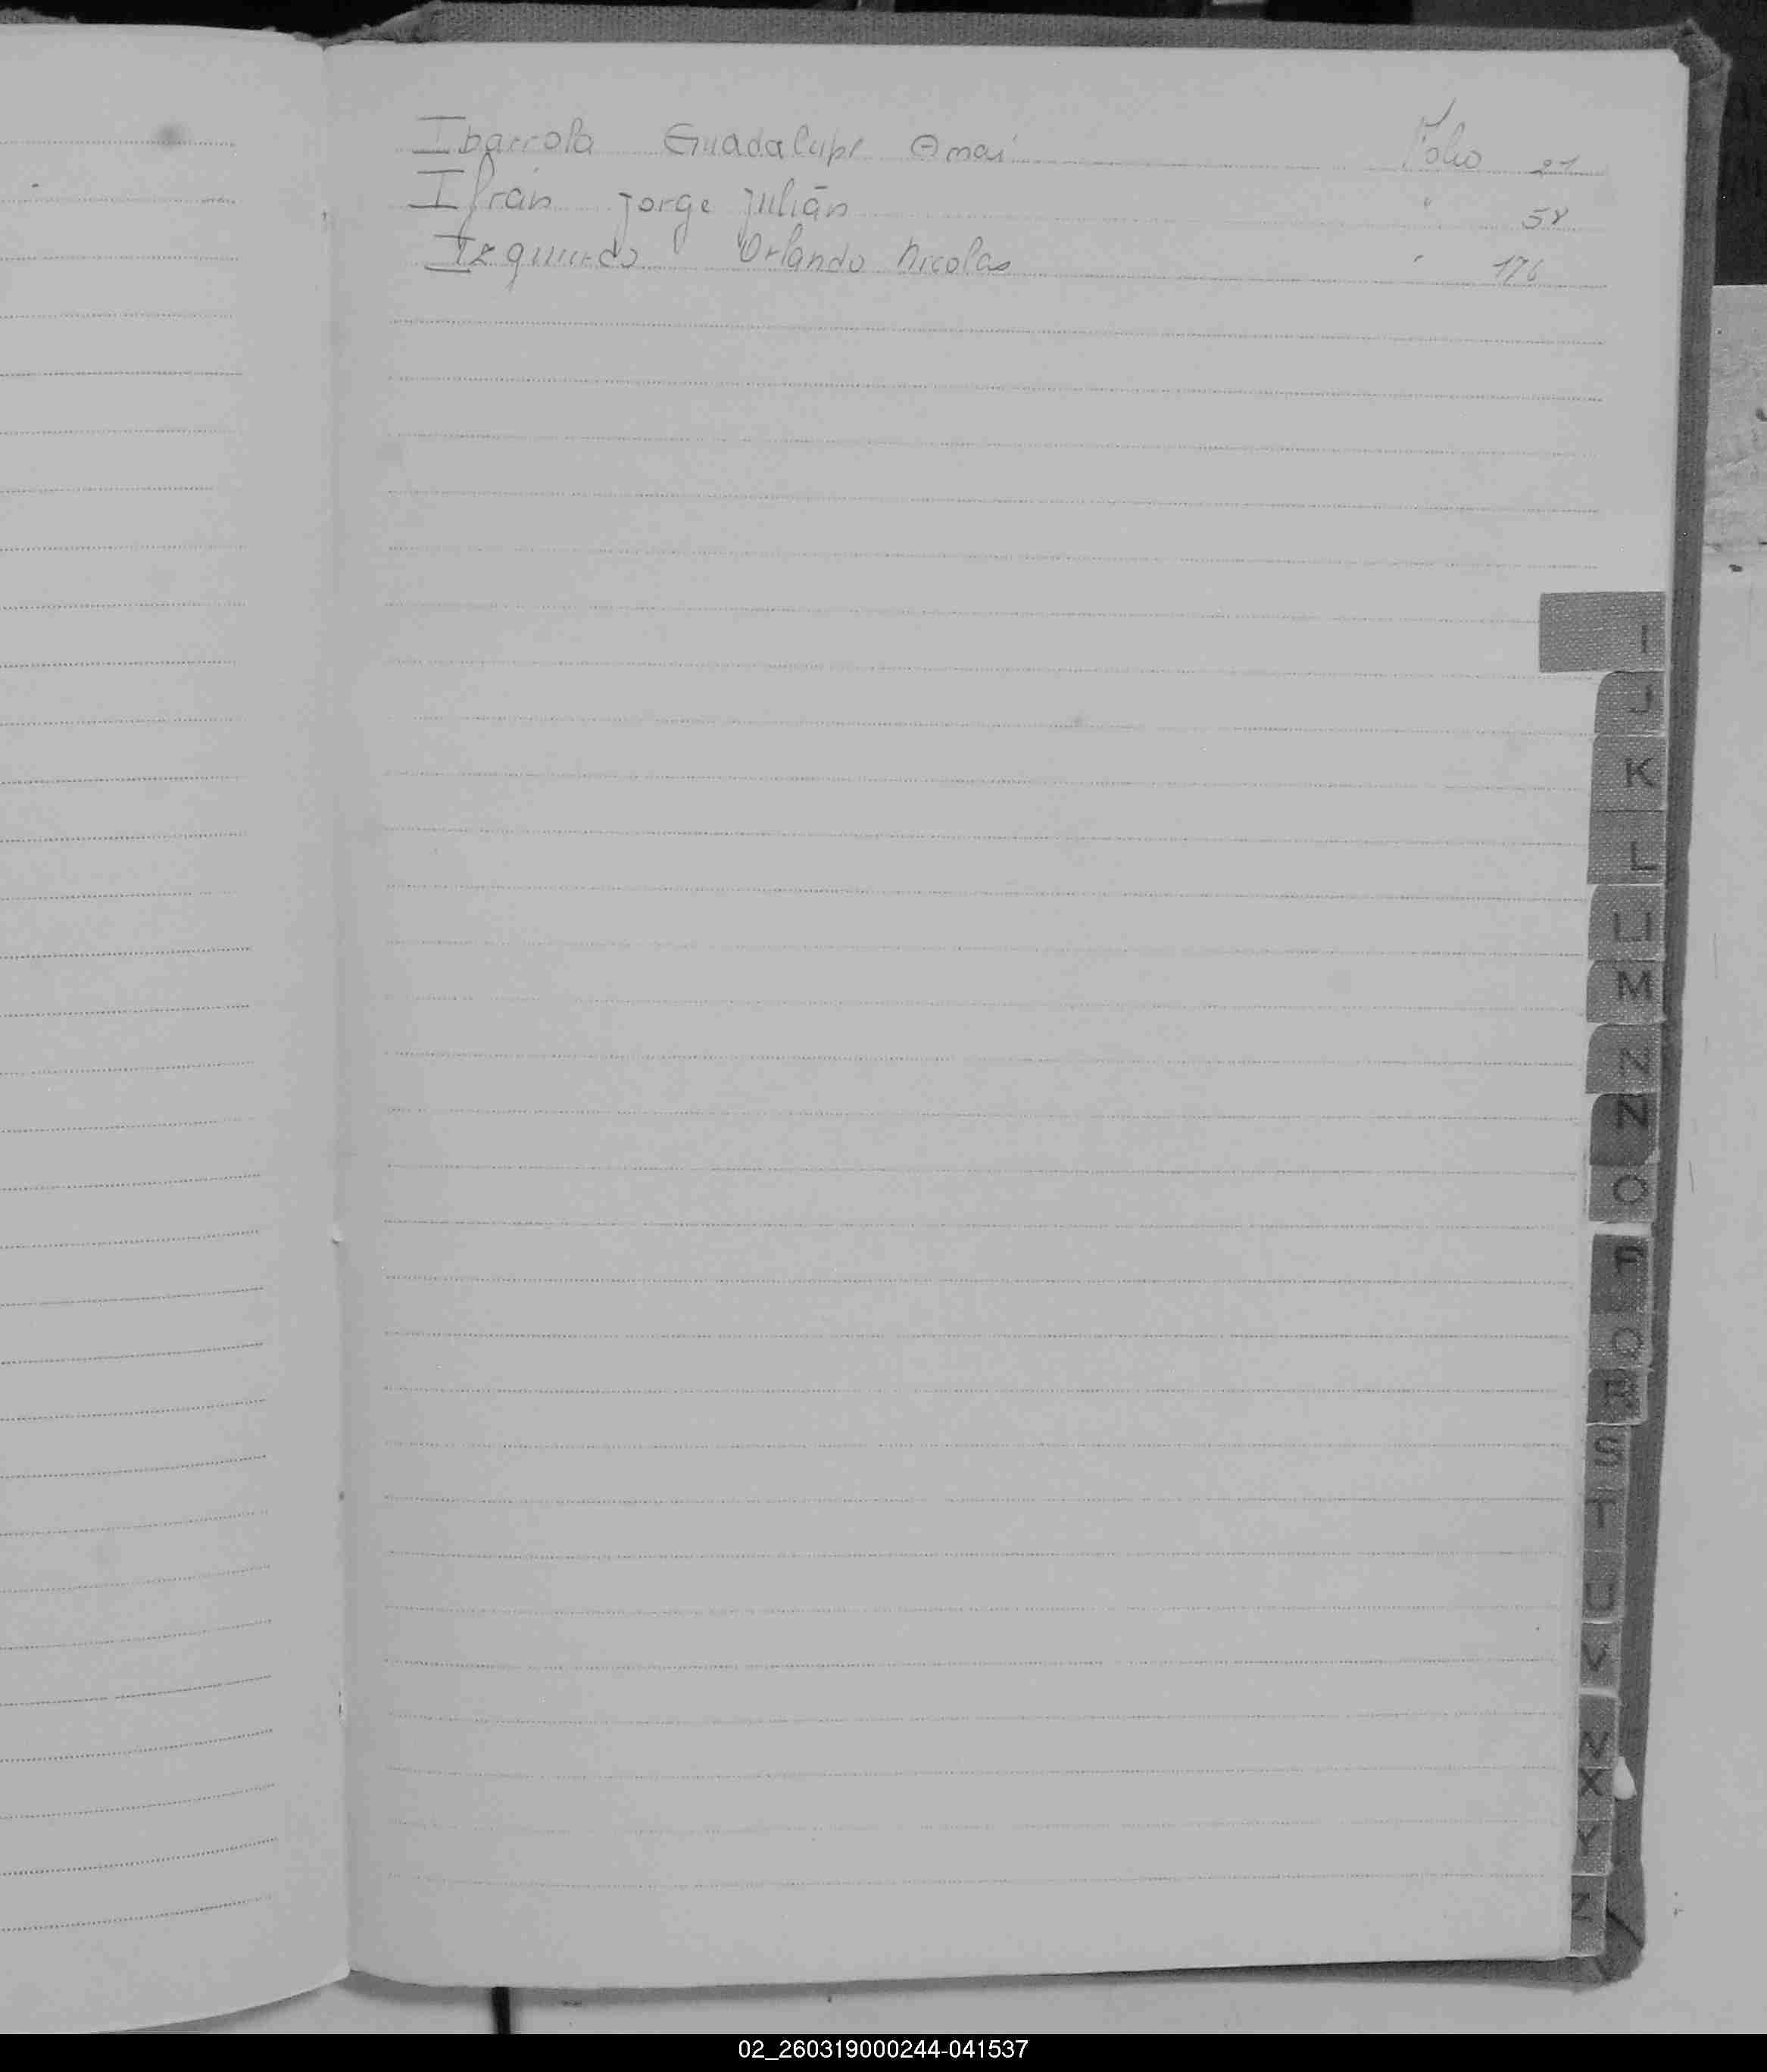 Ibarrola Guadalupe Omai Folio 21
Ifran Jorge Julián " 58
Izquierdo Orlando Nicolas " 176
I
J
K
L
Ll
M
N
Ñ
O
P
Q
R
S
T
U
V
W
X
Y
Z
02_260319000244-041537